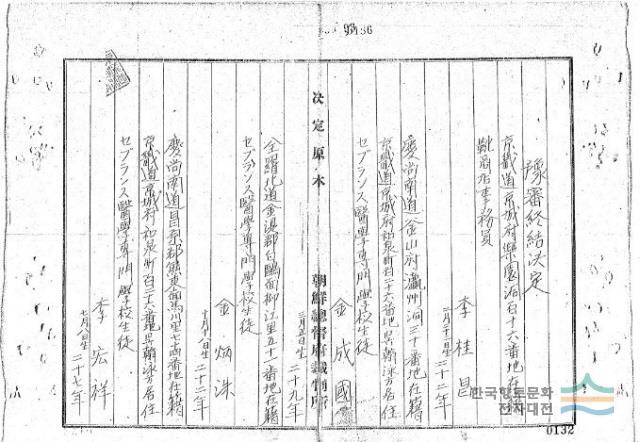 豫審終結決定
京畿道京城府樂園洞百十六番地在籍
靴商店事務員
李桂昌
二月二十一日生 二十二年
慶尚南道釜山府瀛州洞三十番地在籍
京畿道京城府和泉町百二十六番地昇翰泳方居住
セブランス醫學專門學校生徒
金成國
三月五日生 二十九年
決定原本 朝鮮總督府裁判所
全羅北道金堤郡白鷗面柳江里五十一番地在籍
セブランス醫學專門學校生徒
金炳洙
二十二年
慶尚南道昌原郡熊東面馬川里七十四番地在籍
京畿道京城府和泉町百二十六番地昇翰泳方居住
セブランス醫學專門學校生徒
李宏祥
二十七年
한국향토문화
전자대전
0132